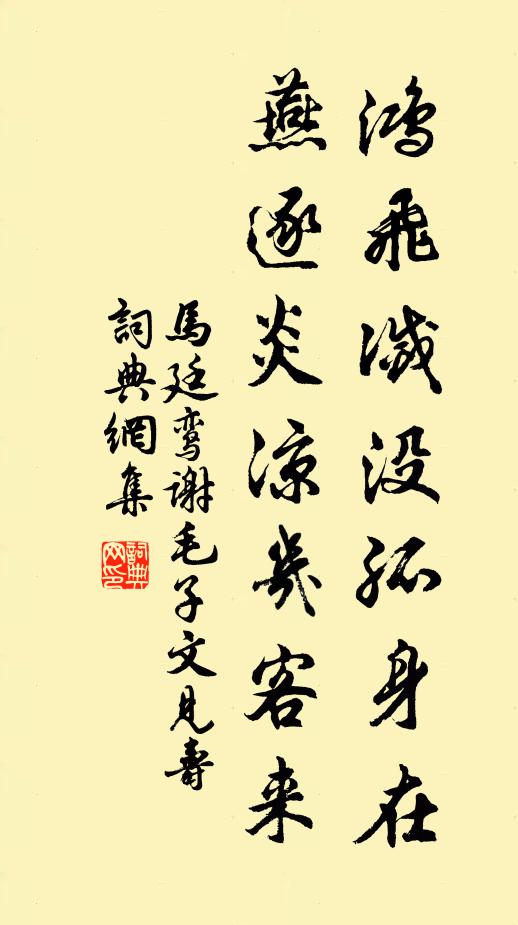 鸿飞滅没孤身在
燕逐炎凉幾客来
馬廷鸾谢毛子文見壽
詞典網集
詞典
网印